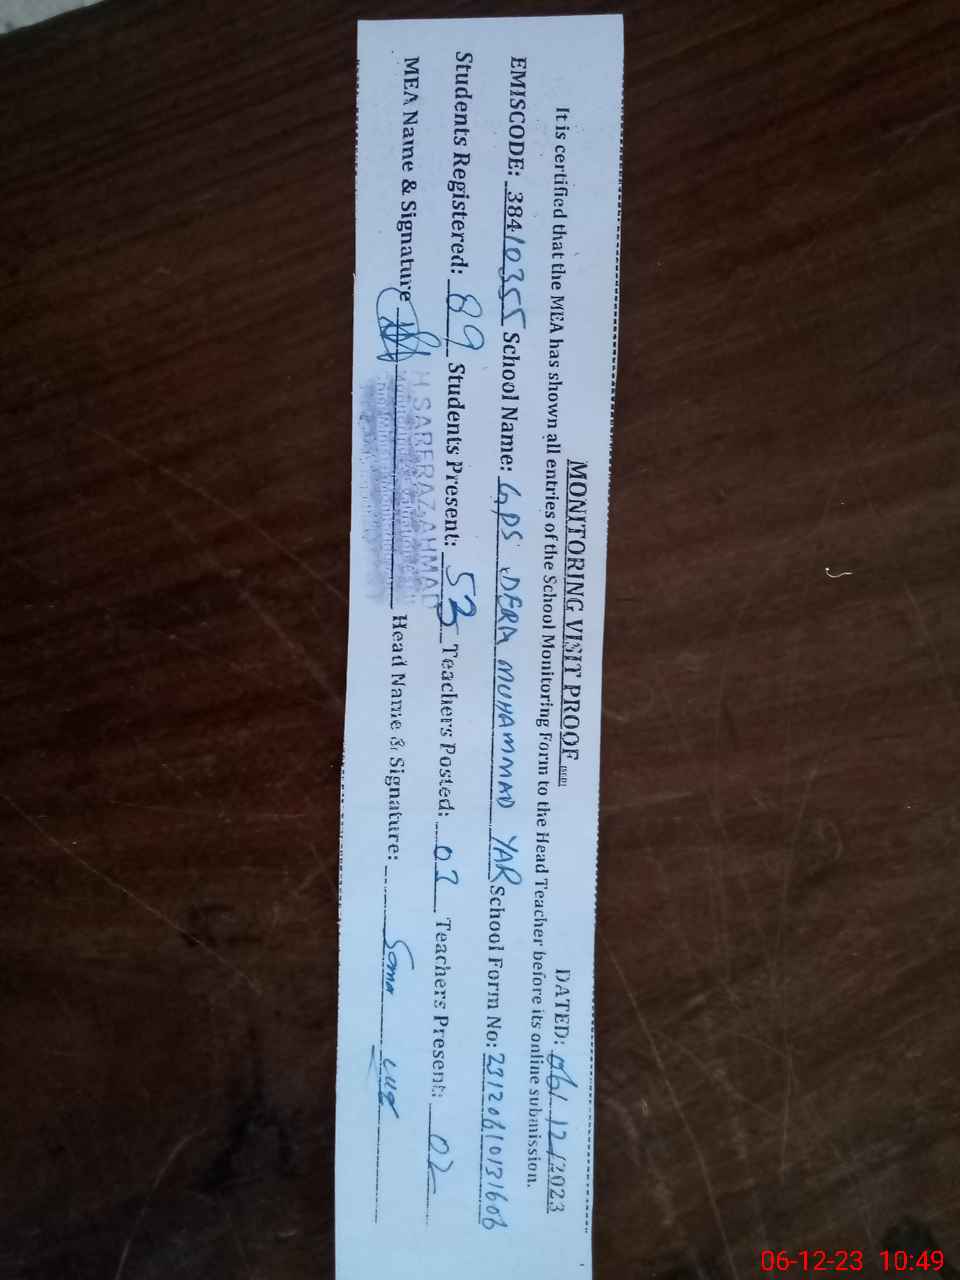 MONITORING VISIT PROOF DATED: 06/12/2023
It is certified that the MEA has shown all entries of the School Monitoring Form to the Head Teacher before its online submission.
EMISCODE: 38410355 School Name: GPS DERA MUHAMMAD YAR School Form No:
Students Registered: 89 Students Present: 53 Teachers Posted: 02 Teachers Present: 02
MEA Name & Signature Head Name & Signature:
SARFRAZ AHMAD
06-12-23 10:49